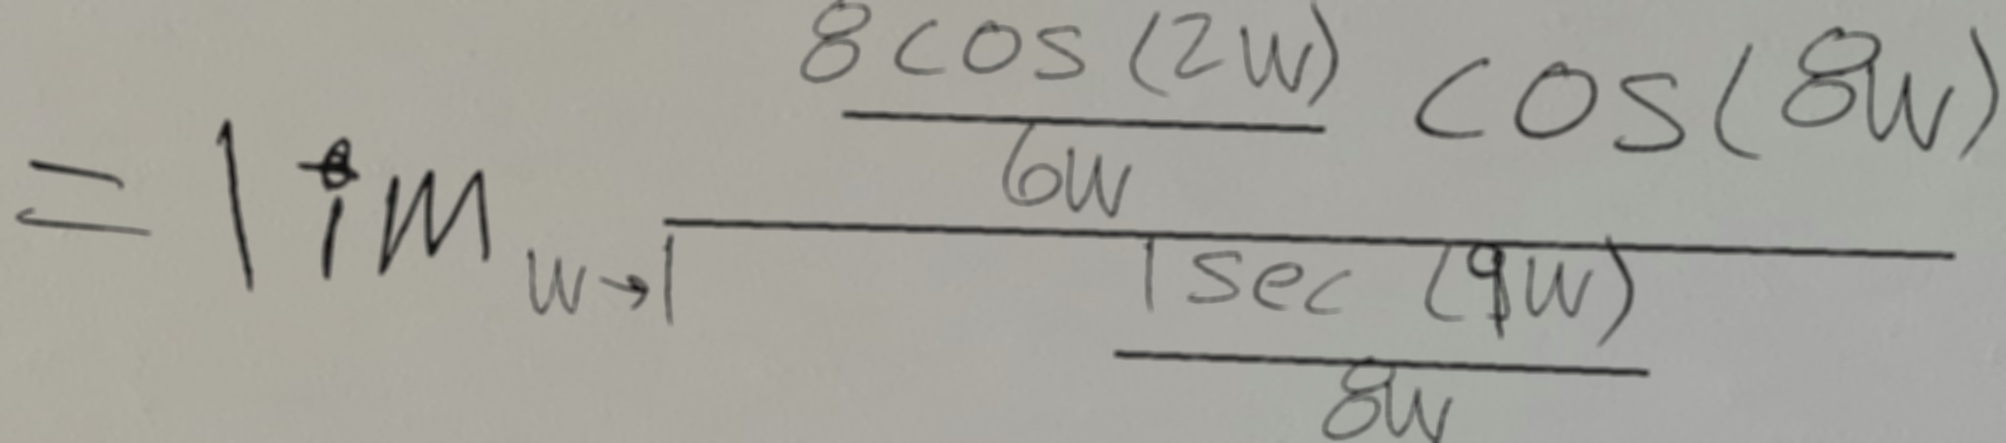 = lim_{w→1} \frac{\frac{8 cos(2w)}{6w} cos(8w)}{\frac{1 sec(9w)}{8w}}